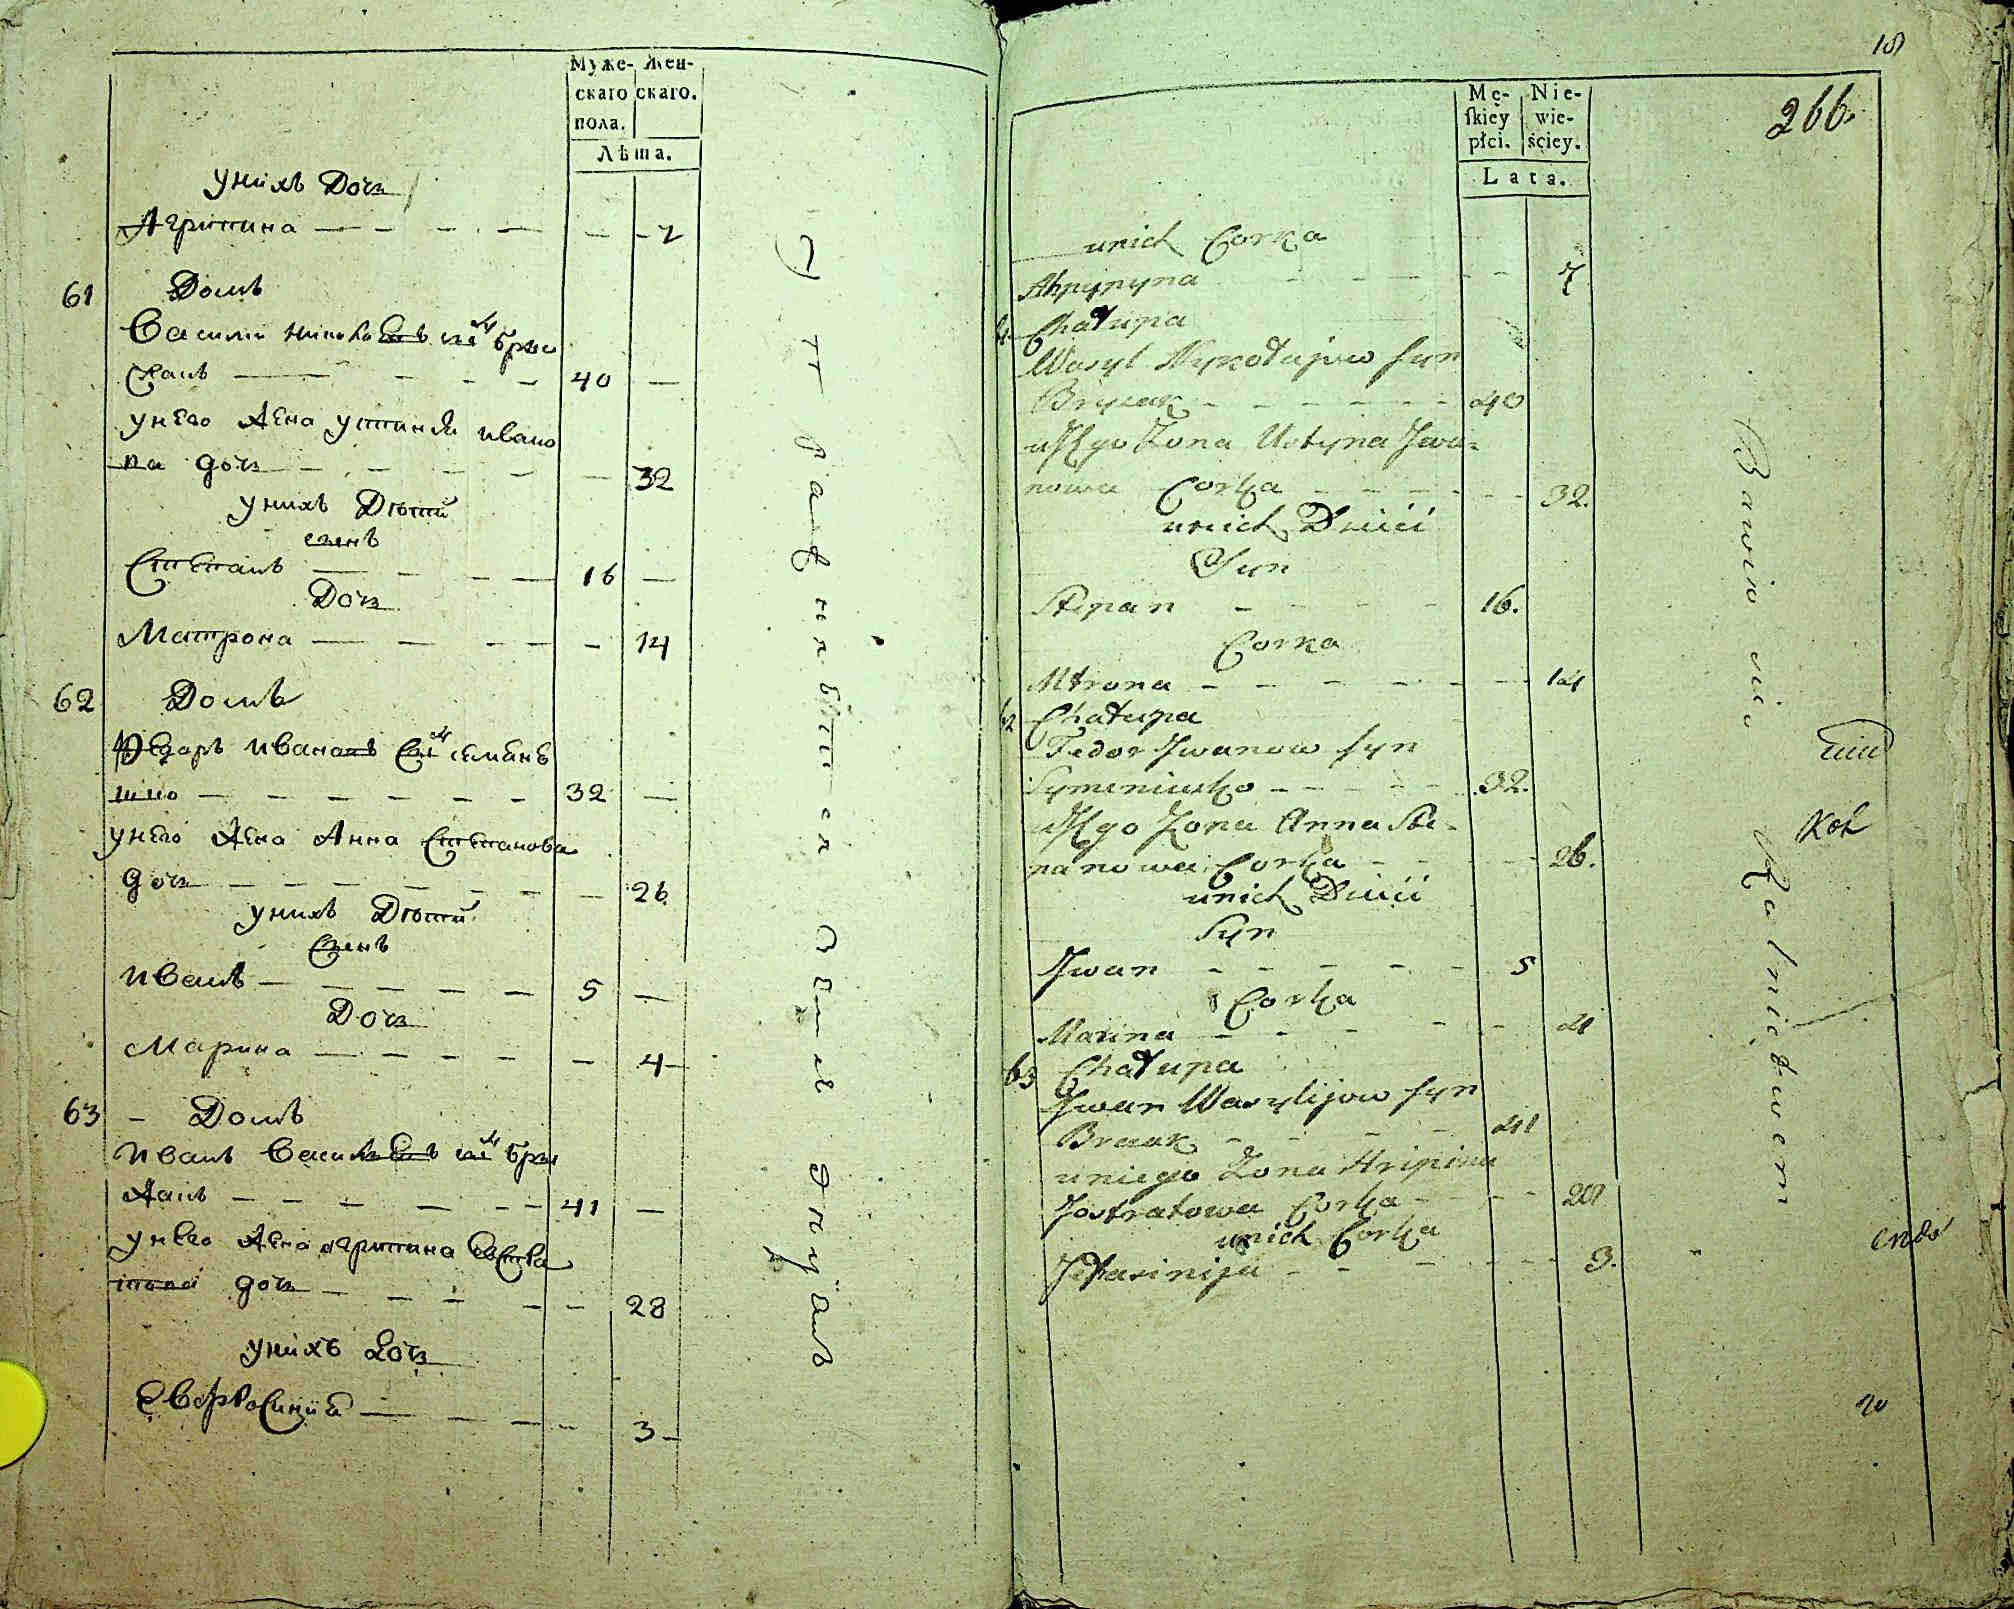 Муже-
скаго
пола.
Жен-
скаго.
Лѣта.
унихъ Дочь
Агрипина — — — — — — 7
61 Домъ
Василий Николаевъ сынъ Брыс
жакъ — — — — 40 —
унего жена Устинья Ивано
ва дочь — — — — — 32
унихъ Дѣти
сынъ
Степанъ — — — — 16 —
Дочь
Матрона — — — — — 14
62 Домъ
Федоръ Ивановъ сынъ Семѣнѣ
— — — — — — 32 —
унего жена Анна Степанова
дочь — — — — — — 26
унихъ Дѣти
Сынъ
Иванъ — — — — — 5 —
Дочь
Марина — — — — — — 4 —
63 — Домъ
Иванъ Васильевъ сынъ Бры
жакъ — — — — — — 41 —
унего жена Агрипина Евстра
това дочь — — — — — — 28
унихъ дочь
Евфросиния — — — — 3 —
Упражняется въ
Mę-
ſkiey
płci.
Nie-
wie-
ściey.
Lata.
18
266.
unich Corka
Ahrypyna — — — — — 7
61 Chałupa
Wasyl Nykołajow syn
Brysak — — — — — — 40
uJego Zona Ustyna Jwa-
nowa Corka — — — — — — 32.
unich Dzieci
Syn
Stepan — — — — 16.
Corka
Mtrona — — — — — — — 14
62 Chałupa
Fedor Jwanow syn
Symeniuszko — — — — — 32.
uJego Zona Anna Ste-
panowa Corka — — — — — 26.
unich Dzieci
Syn
Jwan — — — — — 5
Corka
Marina — — — — — 4
63 Chałupa
Jwan Wasylijow syn
Brauk — — — — — 41
uniego Zona Hripina
Jostratowa Corka — — — — 28
unich Corka
Jefrasinija — — — — — — 3.
Bawio się Rolnictwem